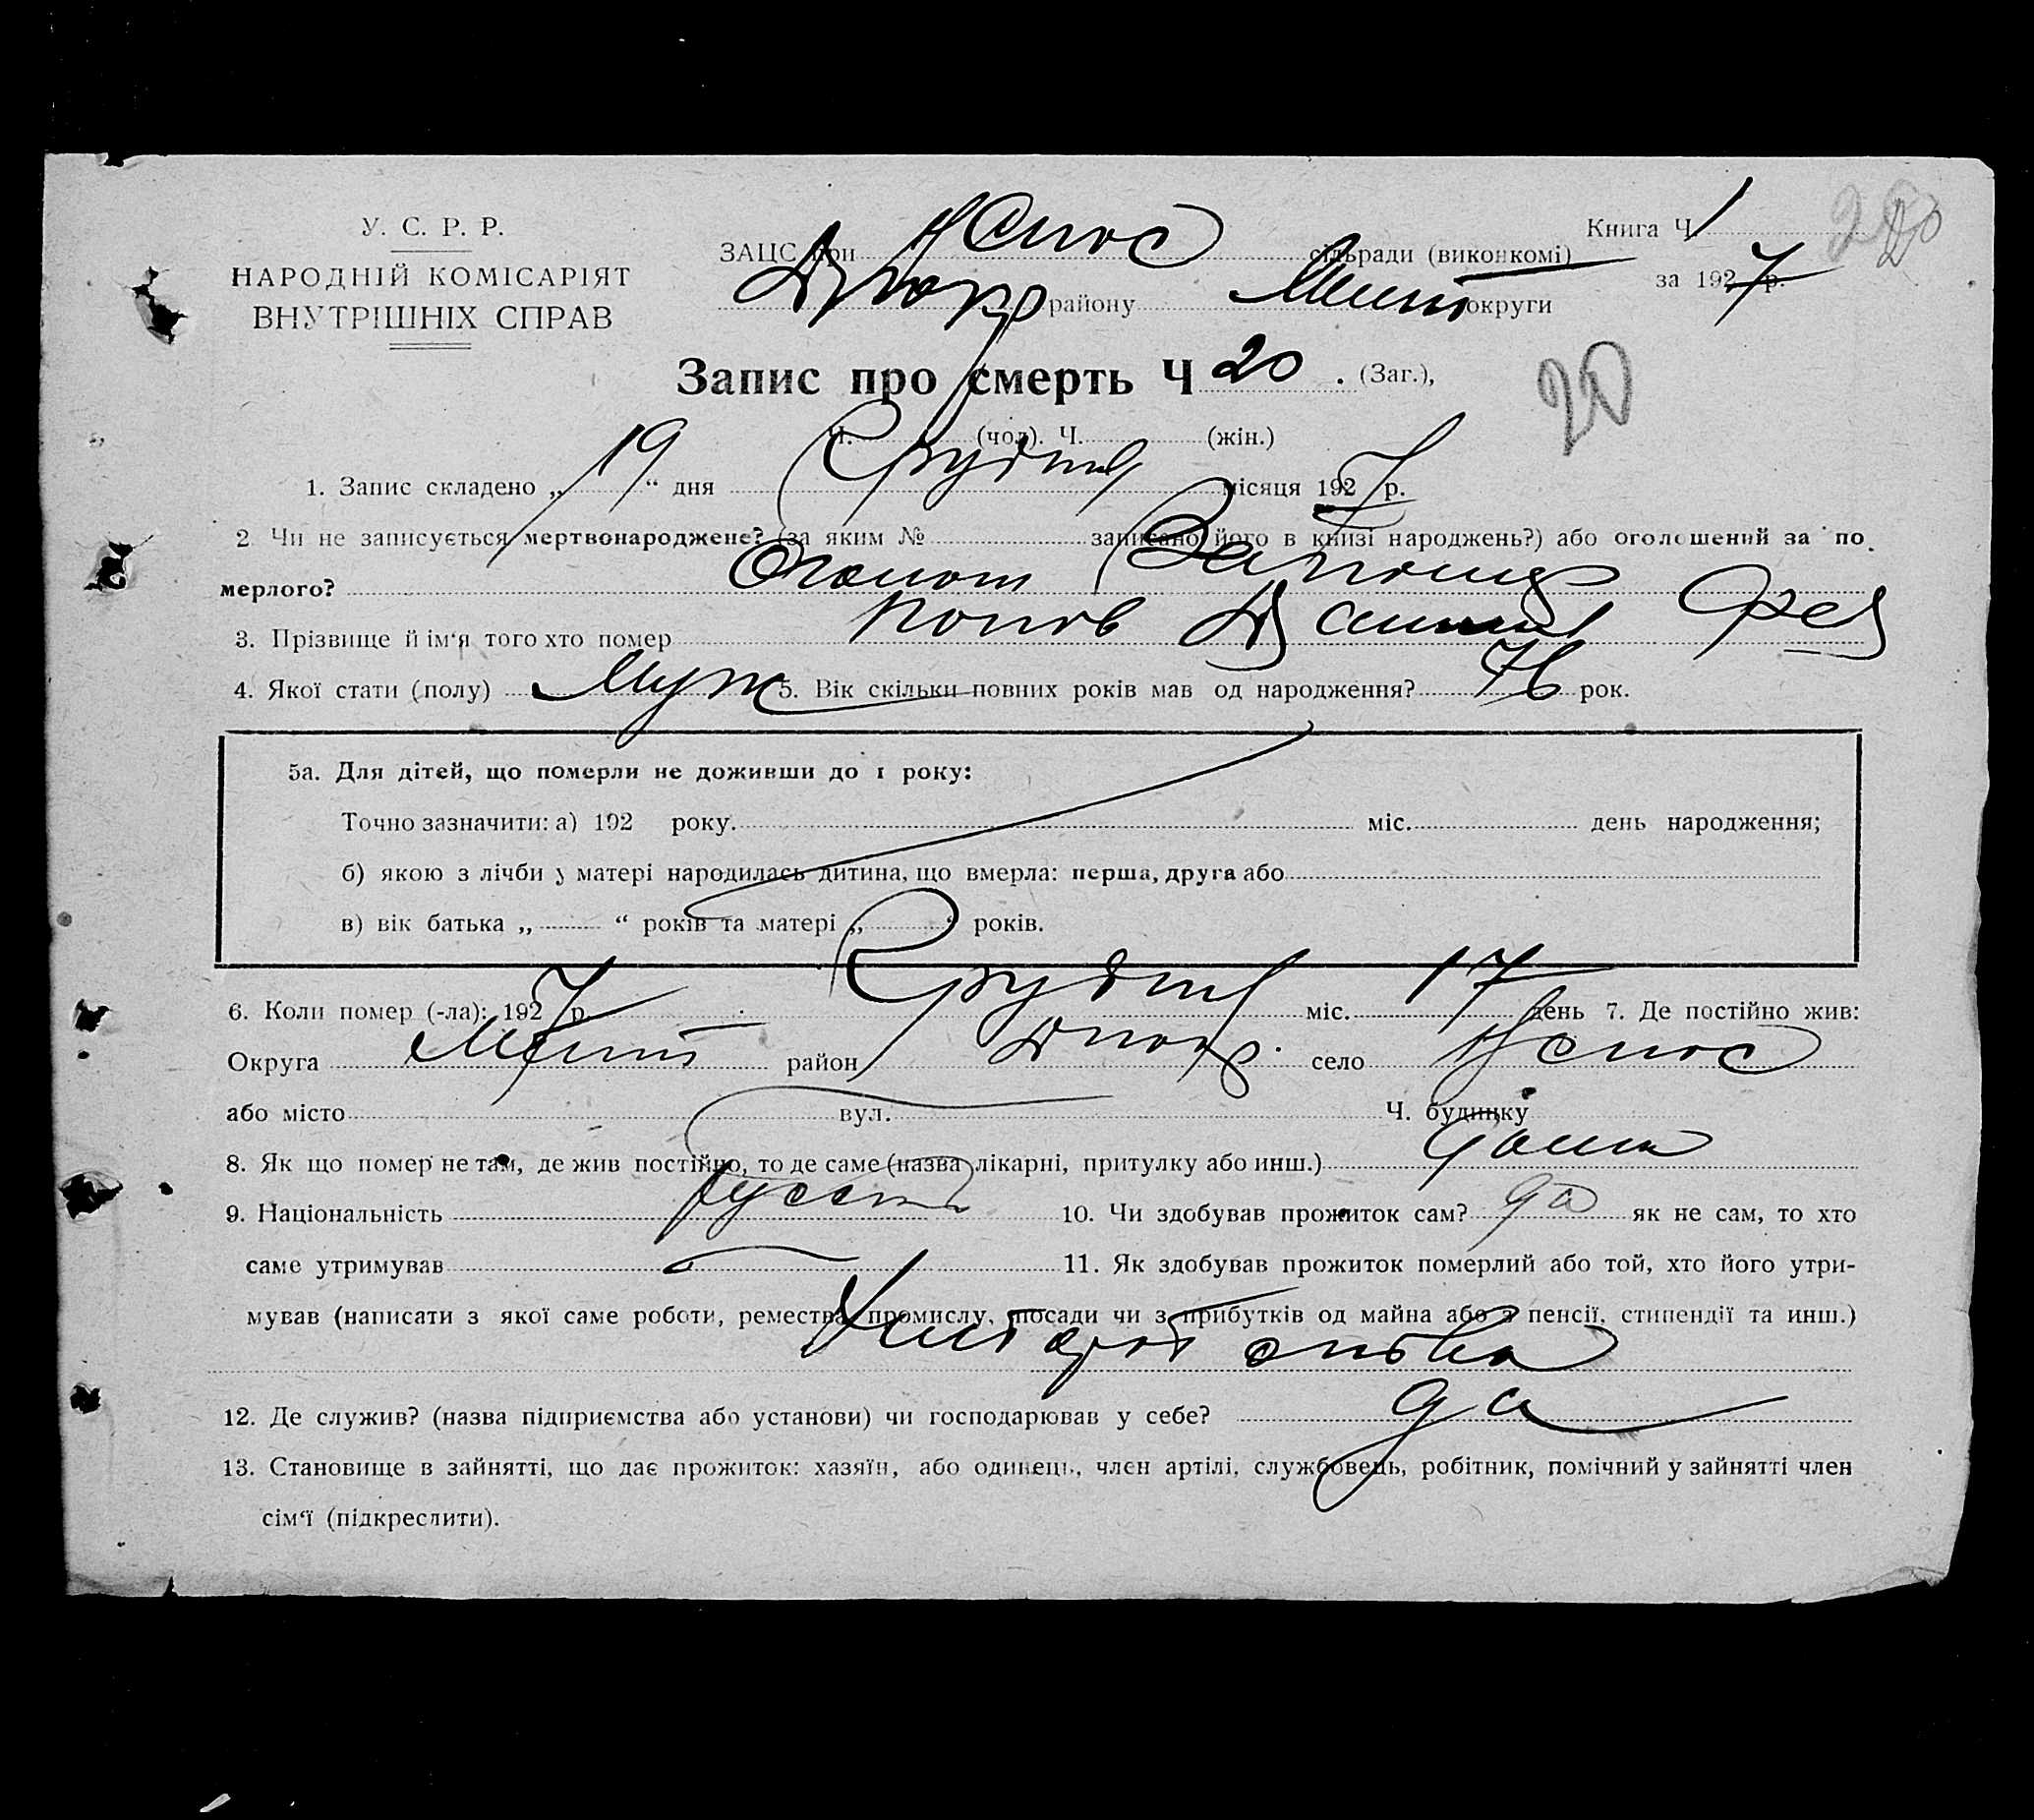 У. С. Р. Р.
НАРОДНІЙ КОМІСАРІЯТ
ВНУТРІШНІХ СПРАВ
Книга Ч. 1
20
ЗАЦС при сільради (виконкомі)
за 1927 р.
району округи
Запис про смерть Ч 20 . (Заг.),
20
Ч. (чол). Ч. (жін.)
1. Запис складено „ 19 “ дня Грудня місяця 1927 р.
2. Чи не записується мертвонароджене? (за яким № записано його в книзі народжень?) або оголошений за по
мерлого?
3. Прізвище й ім‘я того хто помер Попов
4. Якої стати (полу) Муж 5. Вік скільки повних років мав од народження? 76 рок.
5а. Для дітей, що померли не доживши до 1 року:
Точно зазначити: а) 192 року. міс. день народження;
б) якою з лічби у матері народилась дитина, що вмерла: перша, друга або
в) вік батька „ “ років та матері „ “ років.
6. Коли помер (-ла): 1927 р. Грудня міс. 17 день 7. Де постійно жив:
Округа район село
або місто вул. Ч. будинку
8. Як що помер не там, де жив постійно, то де саме (назва лікарні, притулку або инш.) дома
9. Національність 10. Чи здобував прожиток сам? да як не сам, то хто
саме утримував 11. Як здобував прожиток померлий або той, хто його утри-
мував (написати з якої саме роботи, ремества, промислу, посади чи з прибутків од майна або з пенсії, стипендії та инш.)
12. Де служив? (назва підприємства або установи) чи господарював у себе? да
13. Становище в зайнятті, що дає прожиток: хазяїн, або одинець, член артілі, службовець, робітник, помічний у зайнятті член
сім‘ї (підкреслити).